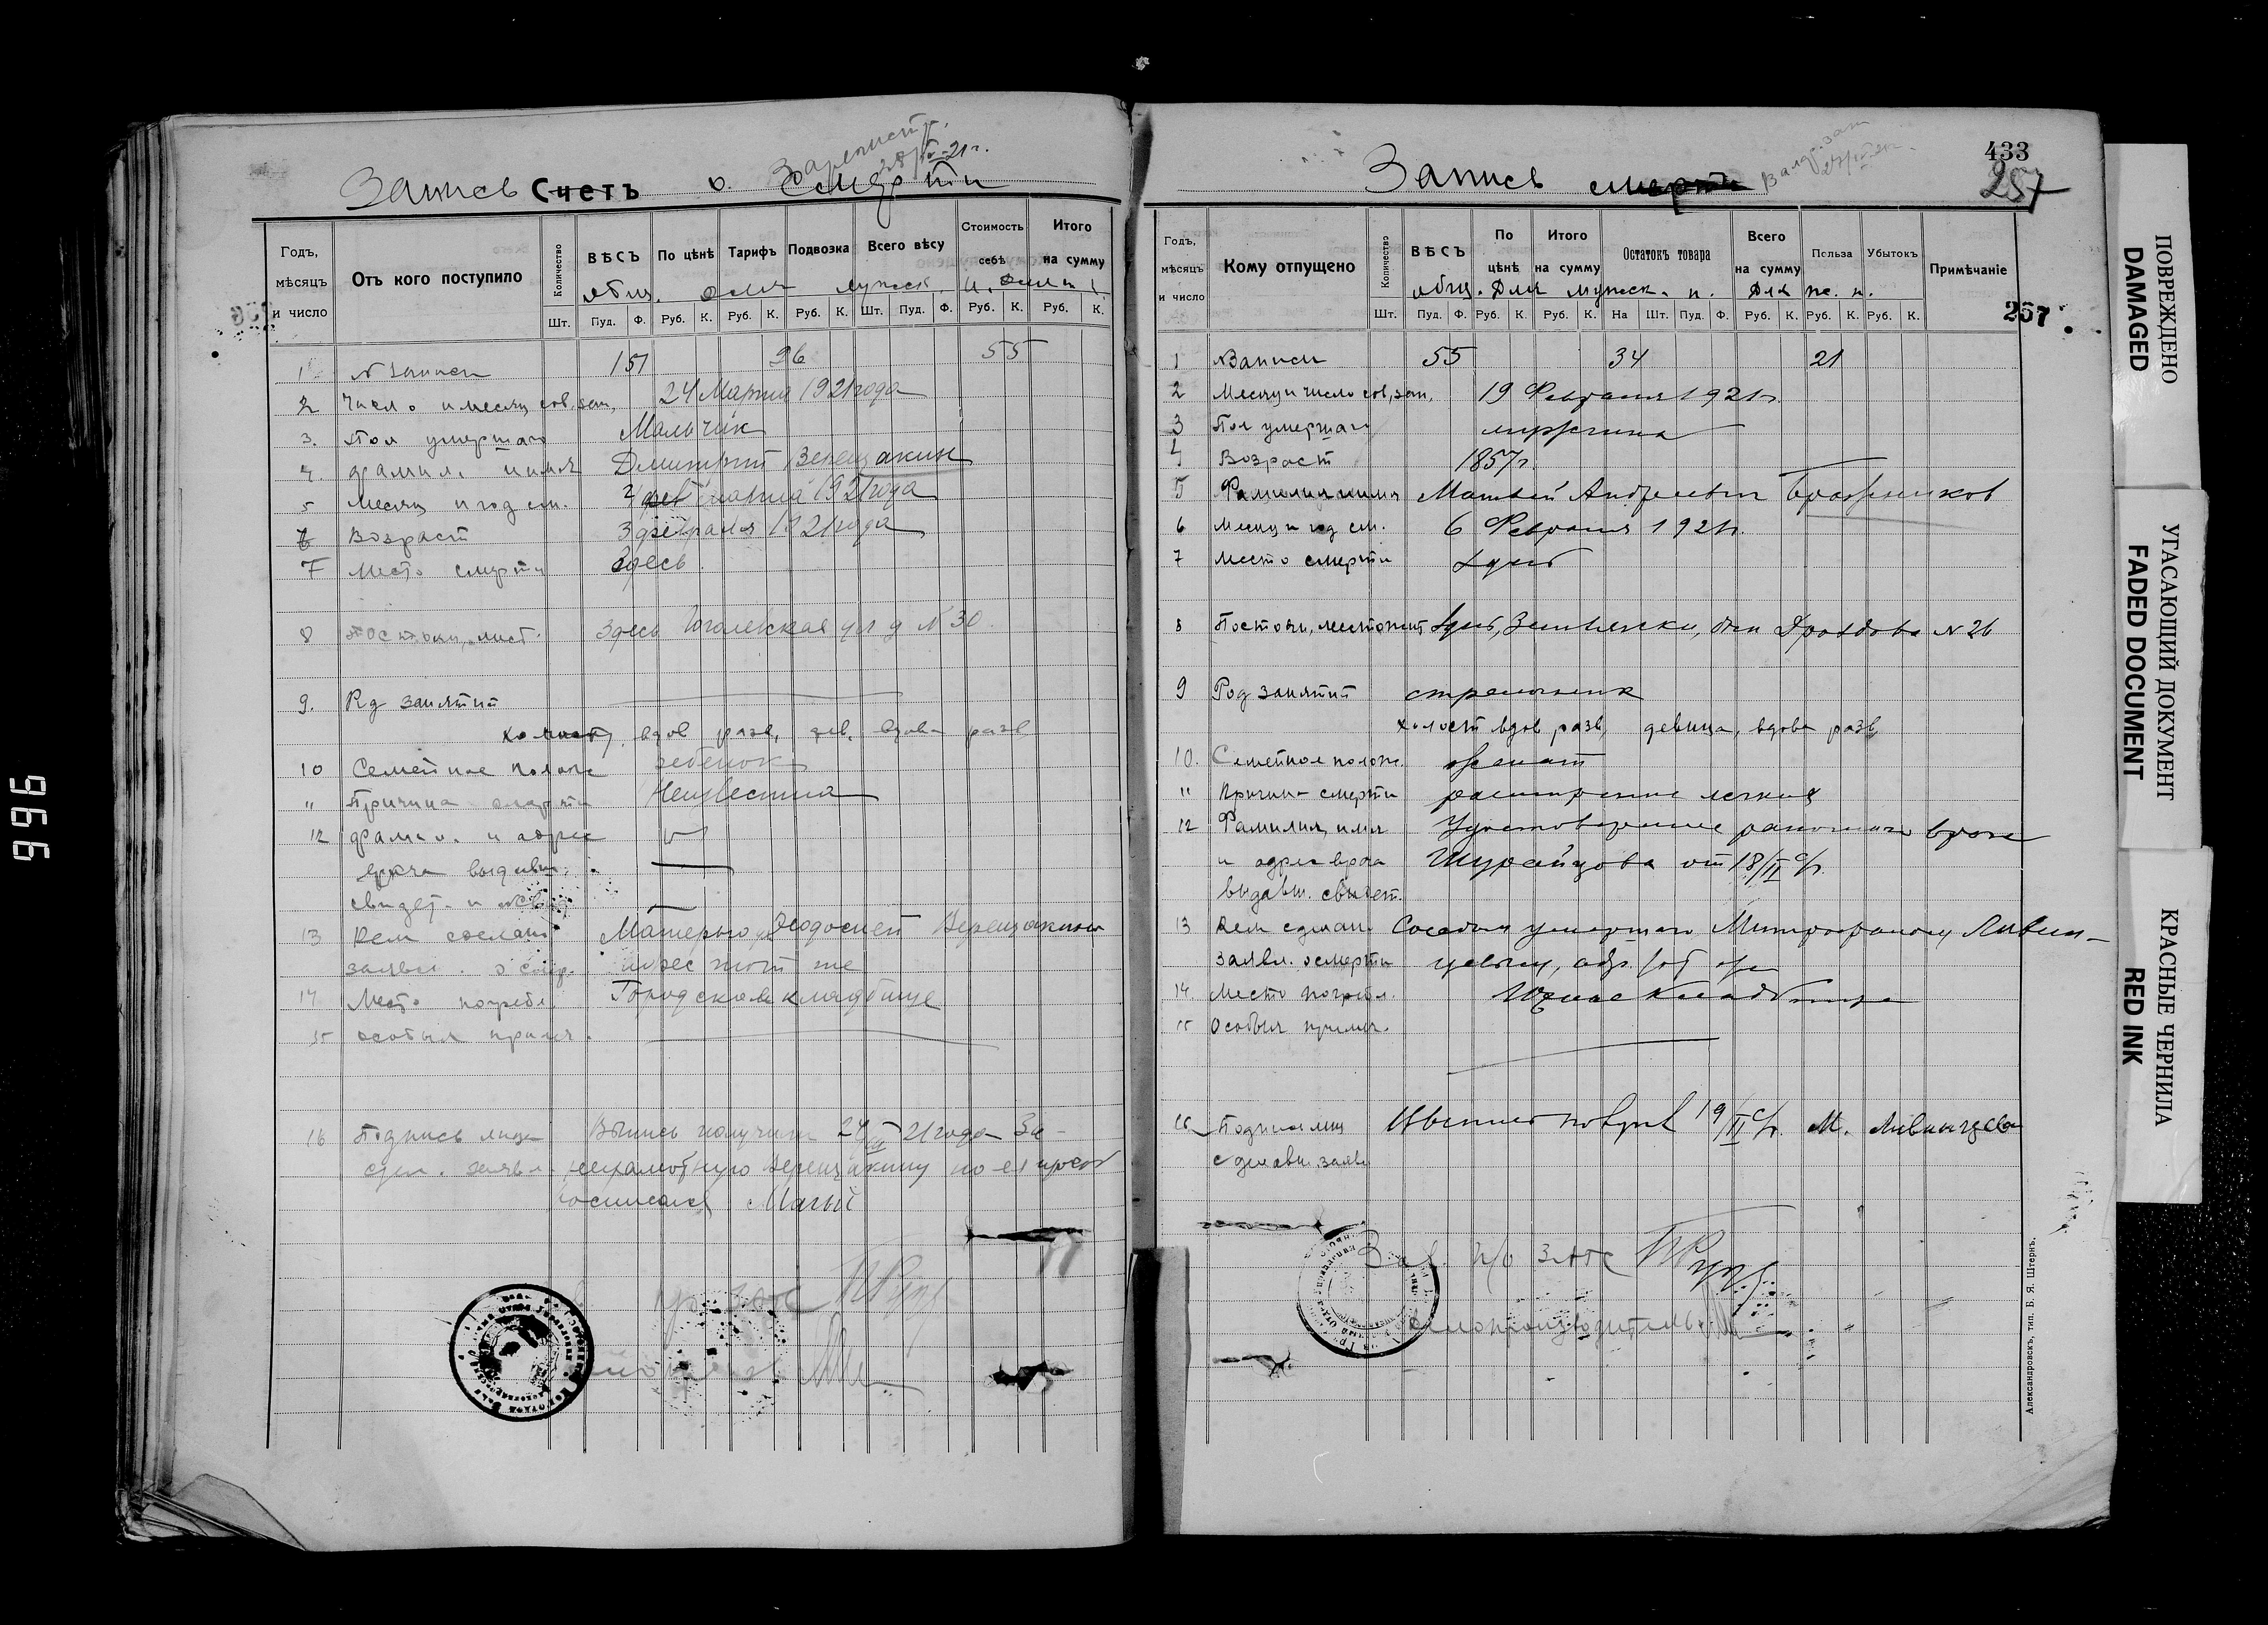 Зарегистр.
Запись Счетъ о смерти
Годъ, мѣсяцъ и число
Отъ кого поступило
Количество
Шт.
ВѢСЪ
Пуд. Ф.
По цѣнѣ
Руб. К.
Тарифъ
Руб. К.
Подвозка
Руб. К.
Всего вѣсу
Шт. Пуд. Ф.
Стоимость себѣ
Руб. К.
Итого на сумму
Руб. К.
общ. для мужск. п. для
1 № записи 151 96 55
2 Число и месяц сов. зап. 24 Марта 1921 года
3. Пол умершаго Мальчик
4. фамил. и имя Дмитрий Верещакин
5 Месяц и год см. марта 1921 года
6 Возраст 3 февраля 1921 года
7 Место смерти Здесь
8 Постоян. мест. Здесь Гоголевская ул д № 30
9. Род занятий
холост, вдов разв, дев. вдова разв
10 Семейное полож ребенок
11 Причина смерти Неизвестна
12 фамил. и адрес
врача выдавш.
свидет. и №
13 Кем сделано Матерью Феодосией Верещакиной
заявл. о смер. адрес тот же
14 Место погребл. Городское кладбище
15 особыя примеч.
16 Подпись лица Выпись получил 24/III 21 года За
сдел. заявл. неграмотную Верещакину по ея прось
росписался
433
257
Запись смерти
Годъ, мѣсяцъ и число
Кому отпущено
Количество
Шт.
ВѢСЪ
Пуд. Ф.
По цѣнѣ
Руб. К.
Итого на сумму
Руб. К.
Остатокъ товара
На Шт. Пуд. Ф.
Всего на сумму
Руб. К.
Польза
Руб. К.
Убытокъ
Руб. К.
Примѣчаніе
общ. Для мужск. п. Для ж. п.
257
1 № Записи 55 34 21
2 Месяц и число сов, зап, 19 Февраля 1921 г.
3 Пол умершаго мужчина
4 Возраст 1857 г.
5 Фамилия имя Матвей Андреевич Бражников
6 Месяц и год см. 6 Февраля 1921 г.
7 Место смерти Здесь
8 Постоян, местожит Здесь, Дроздова № 26
9 Род занятий стрелочник
холост вдов разв, девица, вдова разв,
10. Семейное полож. женат
11 Причина смерти расширение легких
12 Фамилия, имя Удостоверение врача
и адрес врача от 18/II с/г.
выдавш. свидет.
13 Кем сделан. Соседом умершаго Митрофаном Ливин-
заявл. о смерти цевым, адр. тот же
14. Место погребл. Южное Кладбище
15 Особыя примеч.
16 Подпись лиц 19/II с/г. М. Ливинцев
сделавш. заявл
Зав. п/о Загс
Делопроизводитель
Александровскъ, тип. Б. Я. Штернъ.
ПОВРЕЖДЕНО
DAMAGED
УГАСАЮЩИЙ ДОКУМЕНТ
FADED DOCUMENT
КРАСНЫЕ ЧЕРНИЛА
RED INK
996